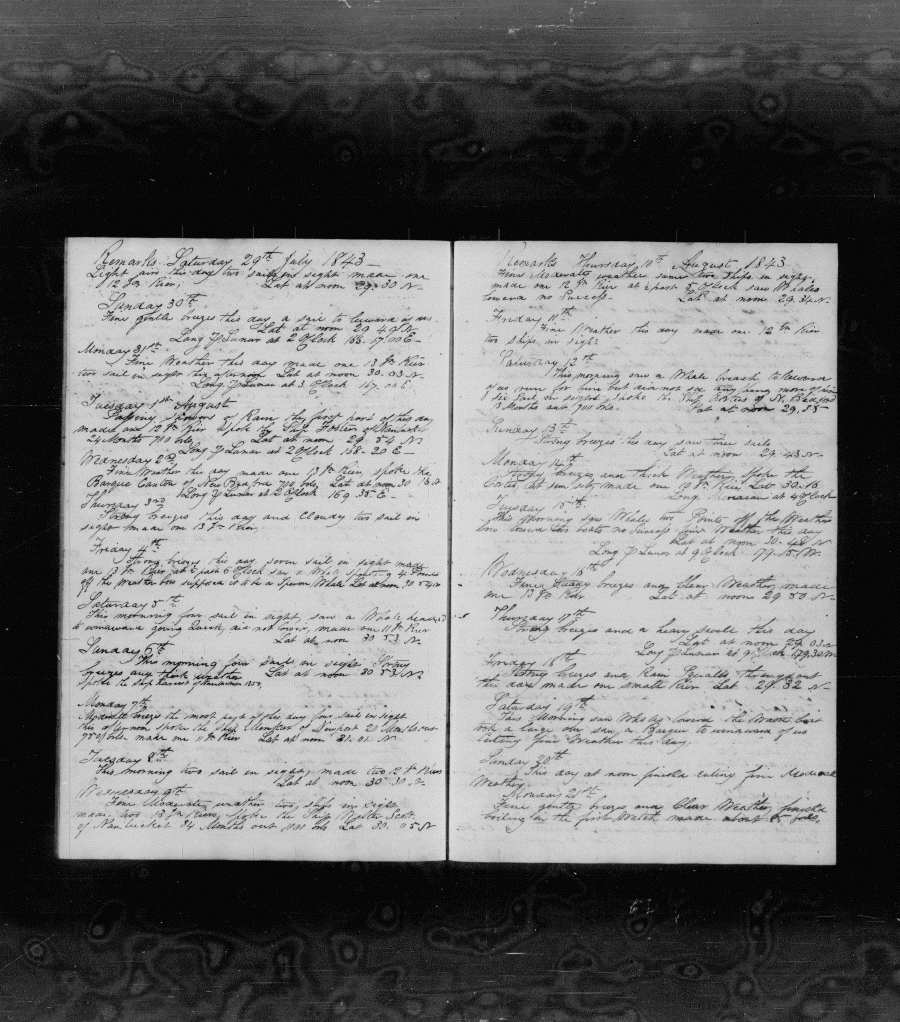 Remarks Saturday 29th July 1843
Light airs this day two ships in sight made one
12 in Lat at noon 29. 30 N
Sunday 30th
Fine gentle brezes this day, a sail to leward of us
Lat at noon 29 49 N
Long by Lunar at 2 OClock 166. 17.00 E
Monday 31st
Fine Weather this day made one 13
two sail in sight this afternoon Lat at noon 30. 03 N
Long by Lunar at 3 OClock 167 00 E
Tuesday 1st August
Passing Showers of Rain the first part of this day
made one 12 Spoke the Ship Foster of Nantucket
24 Months 700 bbls, Lat at noon 29 54 N
Long by Lunar at 2 OClock 168-20 E
Wednesday 2nd
Fine Weather this day made one 13 spoke the
Barque Canton of New Bedford 700 bbls, Lat at noon 30 16 N
Long by Lunar at 2 OClock 169 35 E
Thursday 3rd
Strong brezes this day and Cloudy two sail in
sight made one 13
Friday 4th
Strong brezes this day seven sail in sight made
one 13 at past 6 OClock saw a Whale 4 times
off the Weather bow supposed to be a Sperm Whale Lat at noon 30 54 N
Saturday 5th
This morning four sail in sight, saw a Whale headed
to windward going Quick, did not lower, made one 11
Lat at noon 30 53 N
Sunday 6th
This morning four sails in sight Strong
brezes and thick weather Lat at noon 30 53 N
Spoke the Ship Harvest of Nantucket 1350,
Monday 7th
Moderate brezes the most part of this day four sail in sight
this afternoon spoke the Ship of Newport 20 Months out
750 bbls, made one 11 Lat at noon 31. 01 N
Tuesday 8th
This morning two sail in sight, made two 12
Lat at noon 30 30 N
Wednesday 9th
Fine Moderate weather two ships in sight
made two 13 spoke the Ship Walter Scott
of Nantucket 34 Months out bbls Lat 30. 05 N
Remarks Thursday 10th August 1843
Fine Moderate weather same two Ships in sight
made one 12 at past 5 OClock saw Whales
lowerd no Success. Lat at noon 29. 34 N
Friday 11th
Fine Weather this day made one 12
two Ships in sight
Saturday 12th
This morning saw a Whale breach to leeward
of us run for him but did not see any thing more of him
Sail in sight, spoke the Ship of N. Bedford
13 Months out 700 bbls. Lat at noon 29, 55
Sunday 13th
Strong brezes this day saw three sails
Lat at noon 29. 43 N
Monday 14th
Strong brezes and thick Weather Spoke the
made one 12 Lat 30. 16
Long at 4 OClock
Tuesday 15th
This Morning saw Whales two Points off the Weather
bow lowerd the boats no success fine Weather this day
Lat at noon 30. 48 N
Long by Lunar at 9 OClock 179-15 W.
Wednesday 16th
Fine Steady brezes and Clear Weather, made
one 13 Lat at noon 29 50 N
Thursday 17th
Strong brezes and a heavy swell this day
Lat at noon 29. 03 N
Long by Lunar at OClock 179.30 W
Friday 18th
Strong brezes and Rain Squalls throughout
the day made one small Lat 29. 32 N
Saturday 19th
This Morning saw Whales lowerd the Waist boat
took a large one saw, a Barque to windward of us
Cutting fine Weather this day,
Sunday 20th
This day at noon finishd cuting fine Moderate
Weather
Monday 21st
Fine gentle brezes and Clear Weather, finishd
boiling in the first Watch made about bbls,